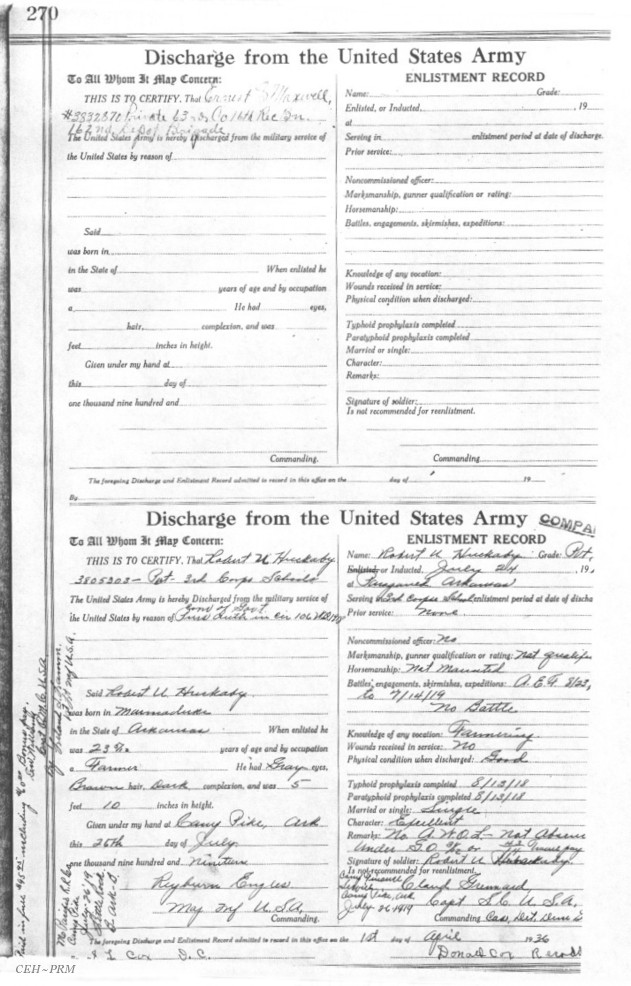 270
Discharge from the United States Army
To All Whom It May Concern:
THIS IS TO CERTIFY, That Ernest Maxwell,
#3832870 Private 63rd Co 16th Rec Bn.
162nd Depot Brigade
The United States Army is hereby Discharged from the military service of
the United States by reason of
Said
was born in
in the State of When enlisted he
was years of age and by occupation
a He had eyes,
hair, complexion, and was
feet inches in height.
Given under my hand at
this day of
one thousand nine hundred and
Commanding.
ENLISTMENT RECORD
Name: Grade:
Enlisted, or Inducted, , 19
at
Serving in enlistment period at date of discharge.
Prior service:
Noncommissioned officer:
Marksmanship, gunner qualification or rating:
Horsemanship:
Battles, engagements, skirmishes, expeditions:
Knowledge of any vocation:
Wounds received in service:
Physical condition when discharged:
Typhoid prophylaxis completed
Paratyphoid prophylaxis completed
Married or single:
Character:
Remarks:
Signature of soldier:
Is not recommended for reenlistment.
Commanding
The foregoing Discharge and Enlistment Record admitted to record in this office on the day of 19
By
Discharge from the United States Army
COMPA
To All Whom It May Concern:
THIS IS TO CERTIFY, That Robert U Huckaby
3805203 - Pvt - 3rd Corps Schools
The United States Army is hereby Discharged from the military service of
Conv of Govt
the United States by reason of in cir 106
Said Robert U Huckaby
was born in Marmaduke
in the State of Arkansas When enlisted he
was 23 years of age and by occupation
a Farmer He had Gray eyes,
Brown hair, Dark complexion, and was 5
feet 10 inches in height.
Given under my hand at Camp Pike, Ark
this 26th day of July
one thousand nine hundred and nineteen
Reyburn Engles
Maj Inf U.S.A.
Commanding.
ENLISTMENT RECORD
Name: Robert U Huckaby Grade: Pvt.
Enlisted, or Inducted, July 24 , 19
at Paragould Arkansas
Serving 3rd Corps School enlistment period at date of discha
Prior service: None
Noncommissioned officer: No
Marksmanship, gunner qualification or rating: Not qualifi
Horsemanship: Not Mounted
Battles, engagements, skirmishes, expeditions: A.E.F. 8/23,
to 7/14/19
No Battle
Knowledge of any vocation: Farmering
Wounds received in service: No
Physical condition when discharged: Good
Typhoid prophylaxis completed 8/13/18
Paratyphoid prophylaxis completed 8/13/18
Married or single: Single
Character: Excellent
Remarks: No A.W.O.L - Not Absence
Under G.O.
Signature of soldier: Robert U Huckaby
Is not recommended for reenlistment.
Camp Pike, Ark
July 26 1919
Capt U.S.A.
Commanding Cas, Det,
The foregoing Discharge and Enlistment Record admitted to record in this office on the 1st day of April 1936
L Cox D.C.
Donald Cox
Paid in full including 60.00 Bonus
Camp Pike
CEH~PRM